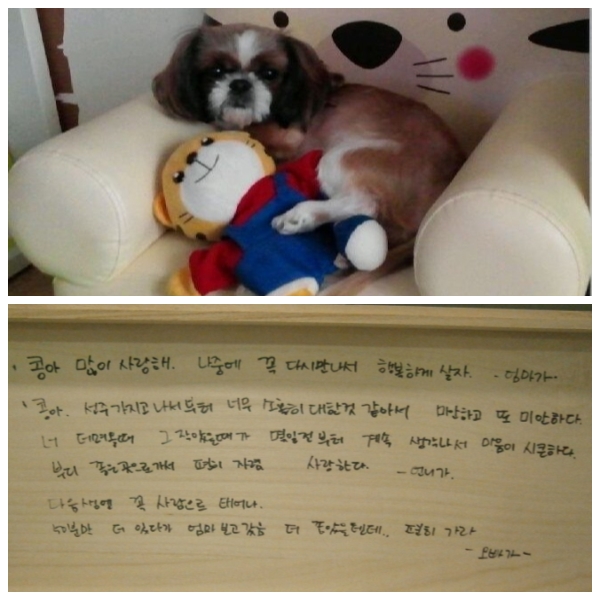 · 콩아 많이 사랑해. 나중에 꼭 다시만나서 행복하게 살자. - 엄마가-
· 콩아. 성주가지고 나서부터 너무 소홀히 대한것 같아서 미안하고 또 미안하다.
너 데려올때 그 작았을때가 몇일전부터 계속 생각나서 마음이 시큰하다.
부디 좋은곳으로가서 편히 지렴 사랑한다. - 언니가.
다음생엔 꼭 사람으로 태어나.
5분만 더 있다가 엄마 보고갔음 더 좋았을텐데.. 편히 가라
- 오빠가 -